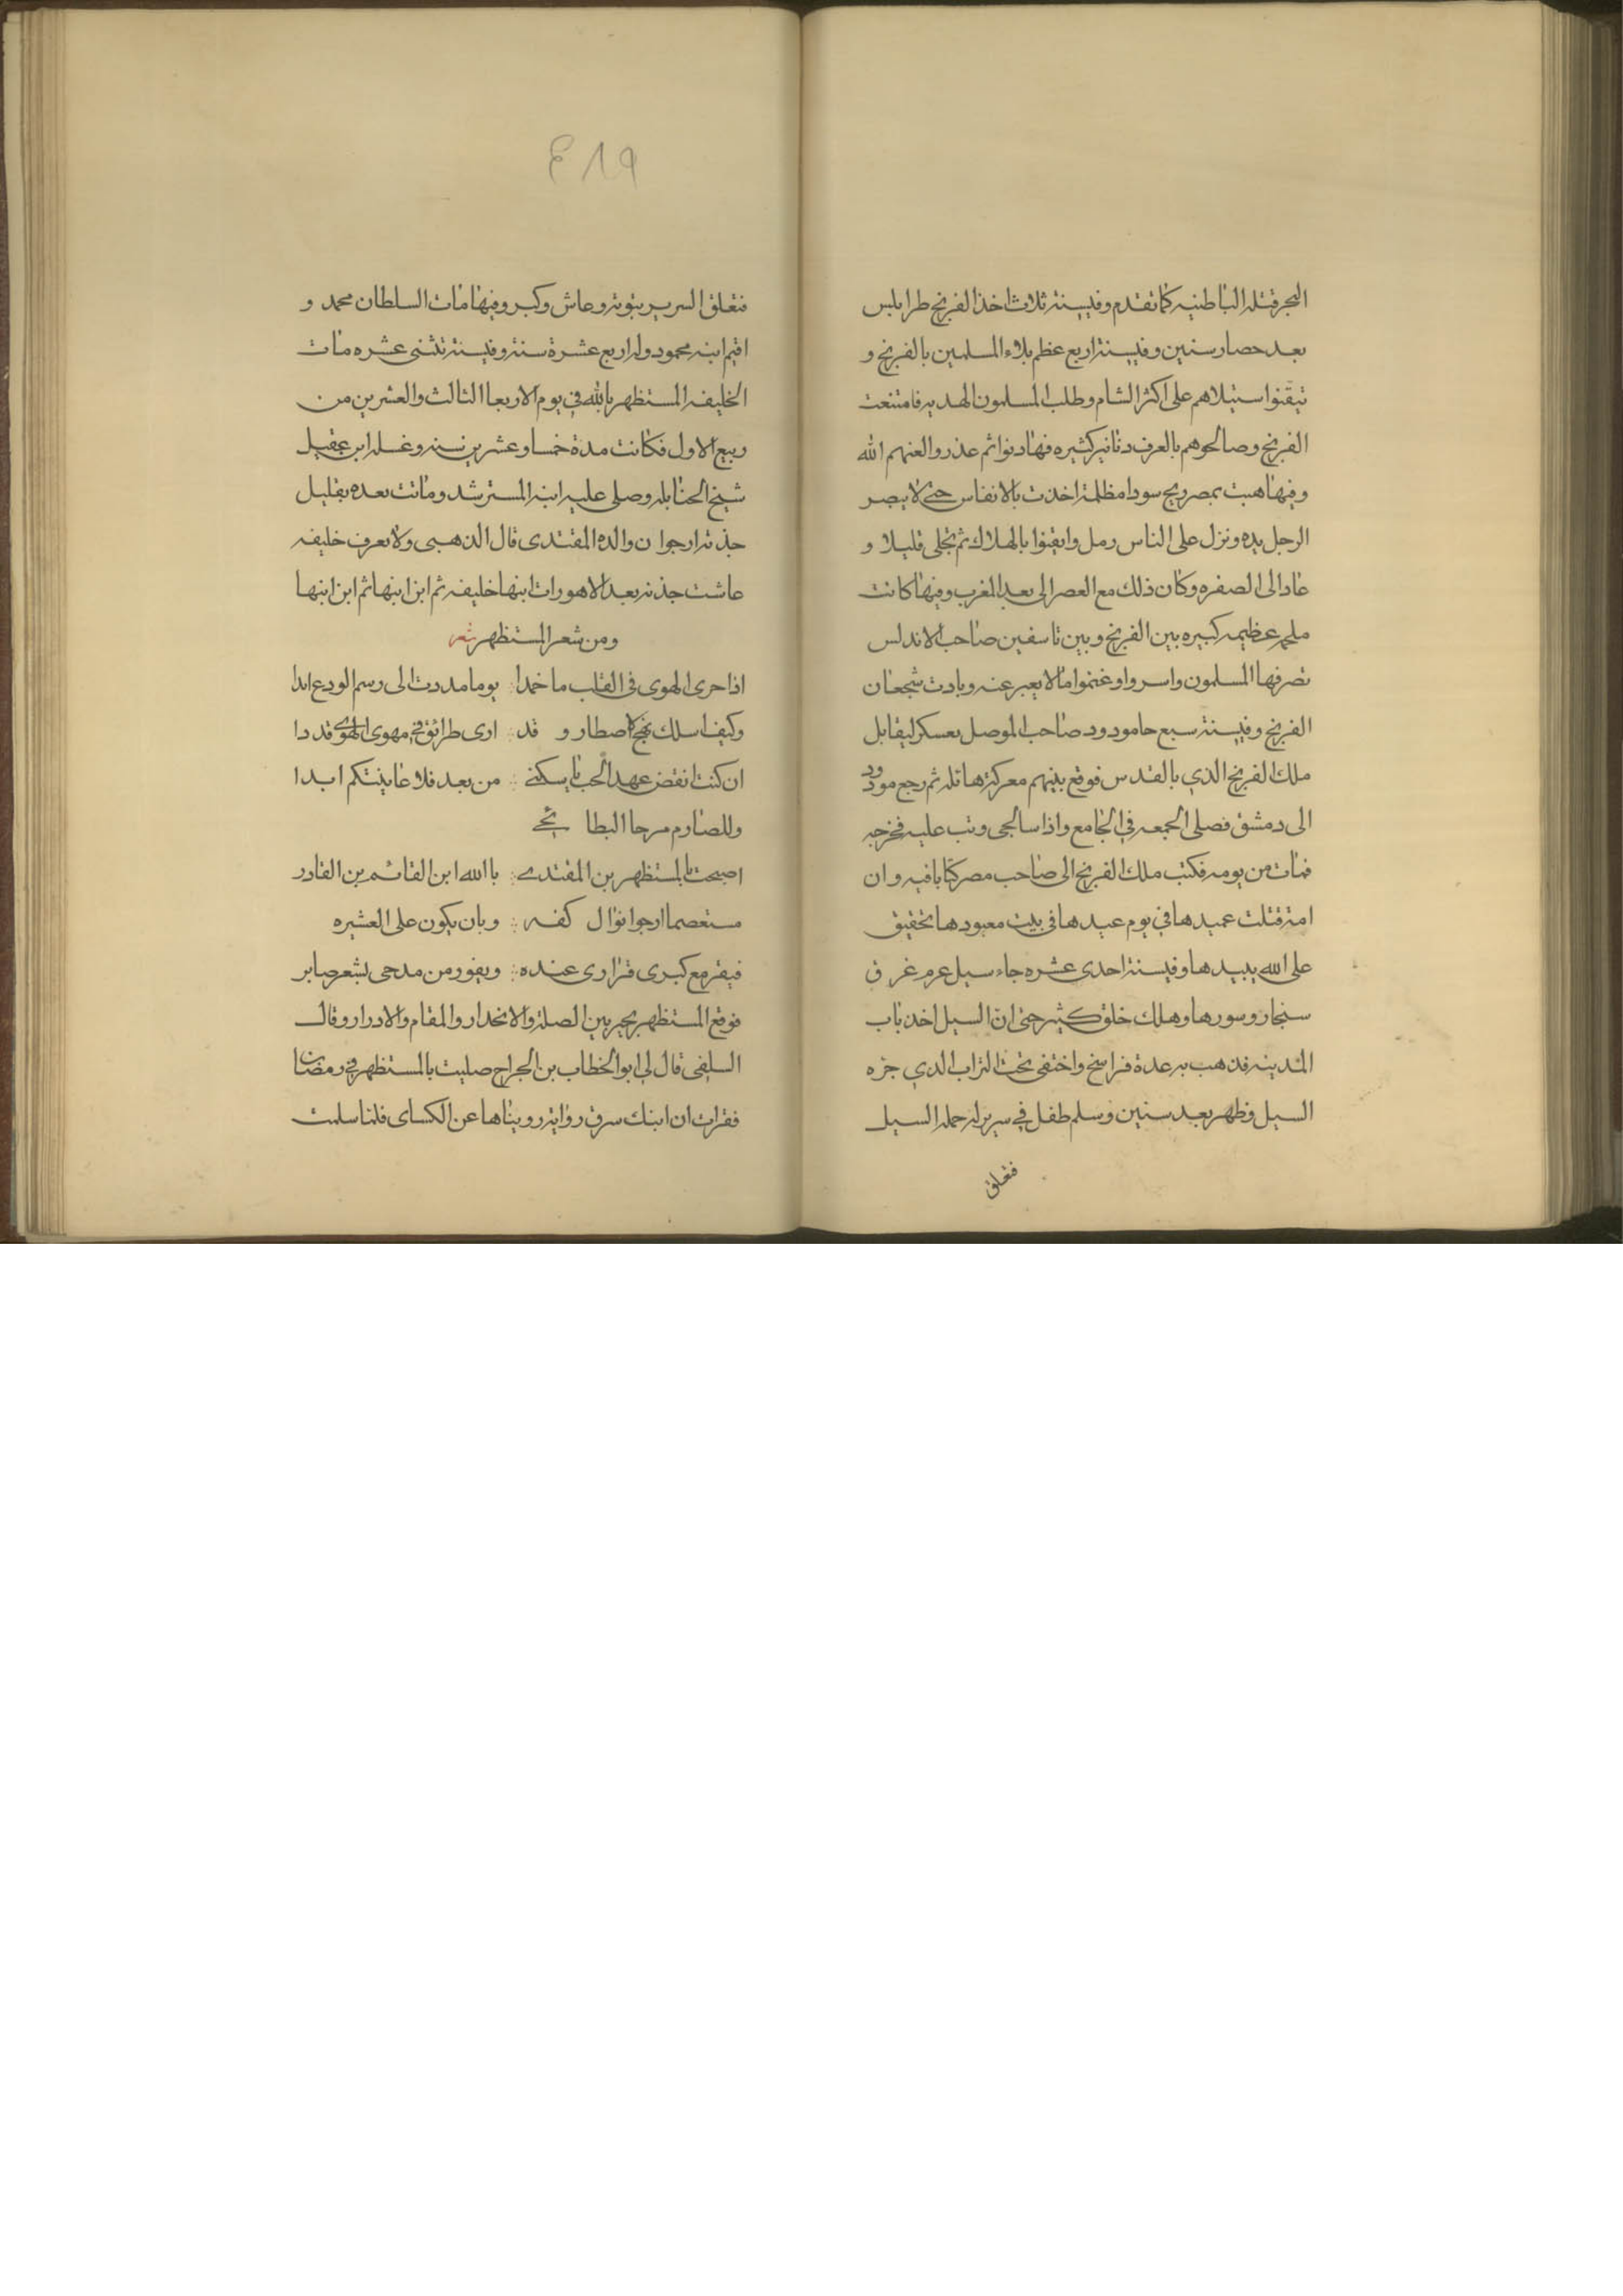 البحر قتله الباطنيه كما تقدم وفيسنة ثلاث اخذ الفرنج طرابلس
بعد حصار سنين وفيسنة اربع عظم بلاء المسلمين بالفرنج و
تيقنوا ستيلاهم على اكثر الشام وطلب المسلمون الهدنه فامتنعت
الفرنج وصالحوهم بالعرف دنانير كثيره فهادنوا ثم غدروا لعنهم الله
وفيها هبت بمصر ريح سودا مظلمة اخذت بالانفاس حتى لا يبصر
الرجل يده ونزل على الناس رمل وايقنوا بالهلاك ثم تجلى قليلا و
عاد الى الصفره وكان ذلك مع العصر الى بعد المغرب وفيها كانت
ملحمه عظيمه كبيره بين الفرنج وبين تاسفين صاحب الاندلس
نصر فيها المسلمون واسروا وغنموا مالا يعبر عنه وبادت شجعان
الفرنج وفيسنة سبع جا مودود صاحب الموصل بعسكر ليقابل
ملك الفرنج الذي بالقدس فوقع بينهم معركة هائله ثم رجع مودود
الى دمشق فصلى الجمعه في الجامع واذا ساجى وتب عليه فخرجه
فمات من يومه فكتب ملك الفرنج الى صاحب مصر كتابا فيه وان
امة قتلت عميدها في يوم عيدها في بيت معبودها تحقيق
على الله يبيدها وفيسنة احدى عشره جاء سيل عرم غرق
سنجار وسورها وهلك خلق كثير حتى ان السيل اخذ باب
المدينه فذهب به عدة فراسخ واختفى تحت التراب الذي جره
السيل وظهر بعد سنين وسلم طفل في سرير له حمله السيل
فتعلق
٤١٩
فتعلق السرير بتوته وعاش وكبر وفيها مات السلطان محمد و
اقيم ابنه محمود وله اربع عشرة سنة وفيسنة تثنى عشره مات
الخليفه المستظهر بالله في يوم الاربعا الثالث والعشرين من
ربيع الاول فكانت مدة خمسا وعشرين سنه وغسله ابن عقيل
شيخ الحنابله وصلى عليه ابنه المسترشد وماتت بعده بقليل
جذته ارجوان والده المقتدى قال الذهبى ولا نعرف خليفه
عاشت جذته بعد الا هو رات ابنها خليفه ثم ابن ابنها ثم ابن ابنها
ومن شعر المستظهر شعر
اذا حرى الهوى في القلب ما خمدا يوما مددت الى رسم الودع ادا
وكيف اسلك نهج الاصطار وقد ارى طرائق في مهوى الهوى قددا
ان كنت انقض عهد الحب يا سكني من بعد فلا عاينتكم ابدا
وللصارم مرجا البطائحي
اصبحت بالمستظهر بن المقتدي باالله ابن القائم بن القادر
مستعصما ارجوا نوال كفه وبان يكون على العشيره
فيقر مع كبرى قرارى عنده ويفوز من مدحى بشعر صابر
فوقع المستظهر بخير بين الصله والانحدار والمقام والادرار وقال
السلفى قال لي ابو الخطاب بن الجراح صليت بالمستظهر في رمضان
فقرات ان ابنك سرق رواية رويناها عن الكساى فلما سلمت